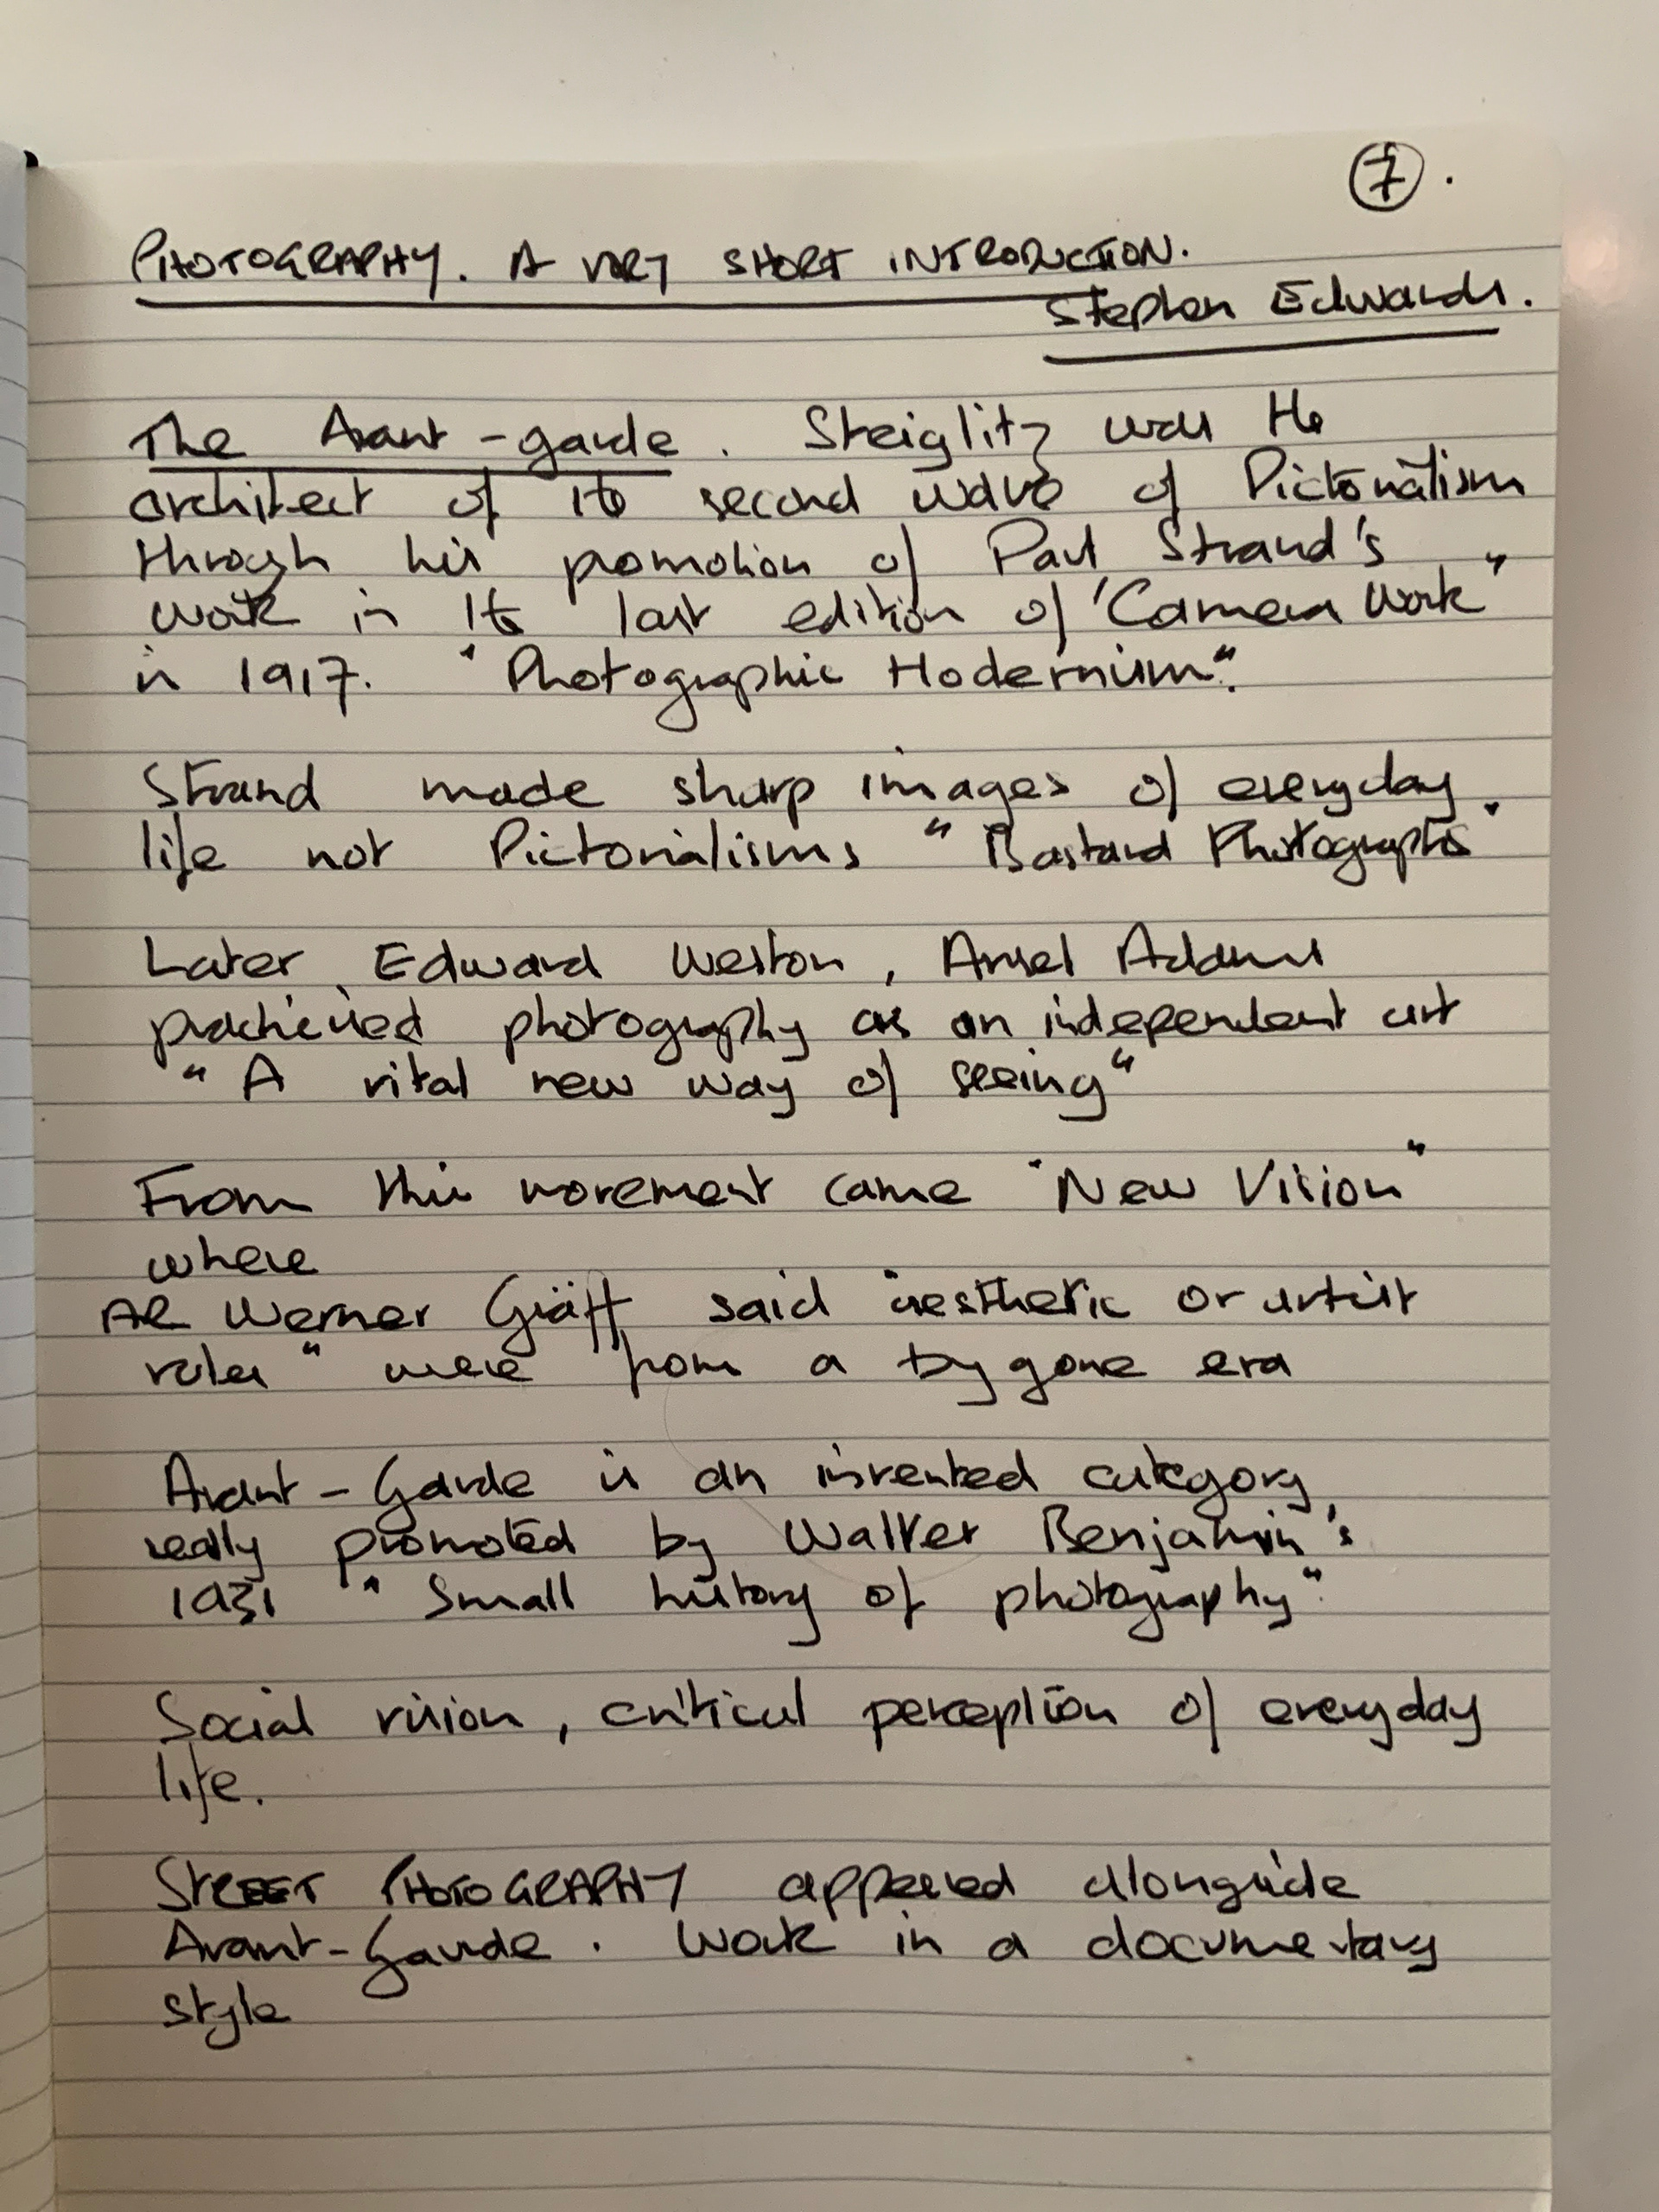 7.
PHOTOGRAPHY. A VERY SHORT INTRODUCTION.
Stephen Edwards.
The Avant-garde. Steiglitz was the
architect of the second wave of Pictorialism
through his promotion of Paul Strand's
work in the last edition of "Camera Work"
in 1917. "Photographic Modernism".
Strand made sharp images of everyday
life not Pictorialisms "Bastard Photographs"
Later, Edward Weston, Ansel Adams
practiced photography as an independent art
"A vital new way of seeing"
From this movement came "New Vision"
where
Werner Gräff said "aesthetic or artist
rules" were from a bygone era
Avant-Garde is an invented category,
really promoted by Walter Benjamin's
1931 "Small history of photography".
Social vision, critical perception of everyday
life.
STREET PHOTOGRAPHY appeared alongside
Avant-Garde. Work in a documentary
style